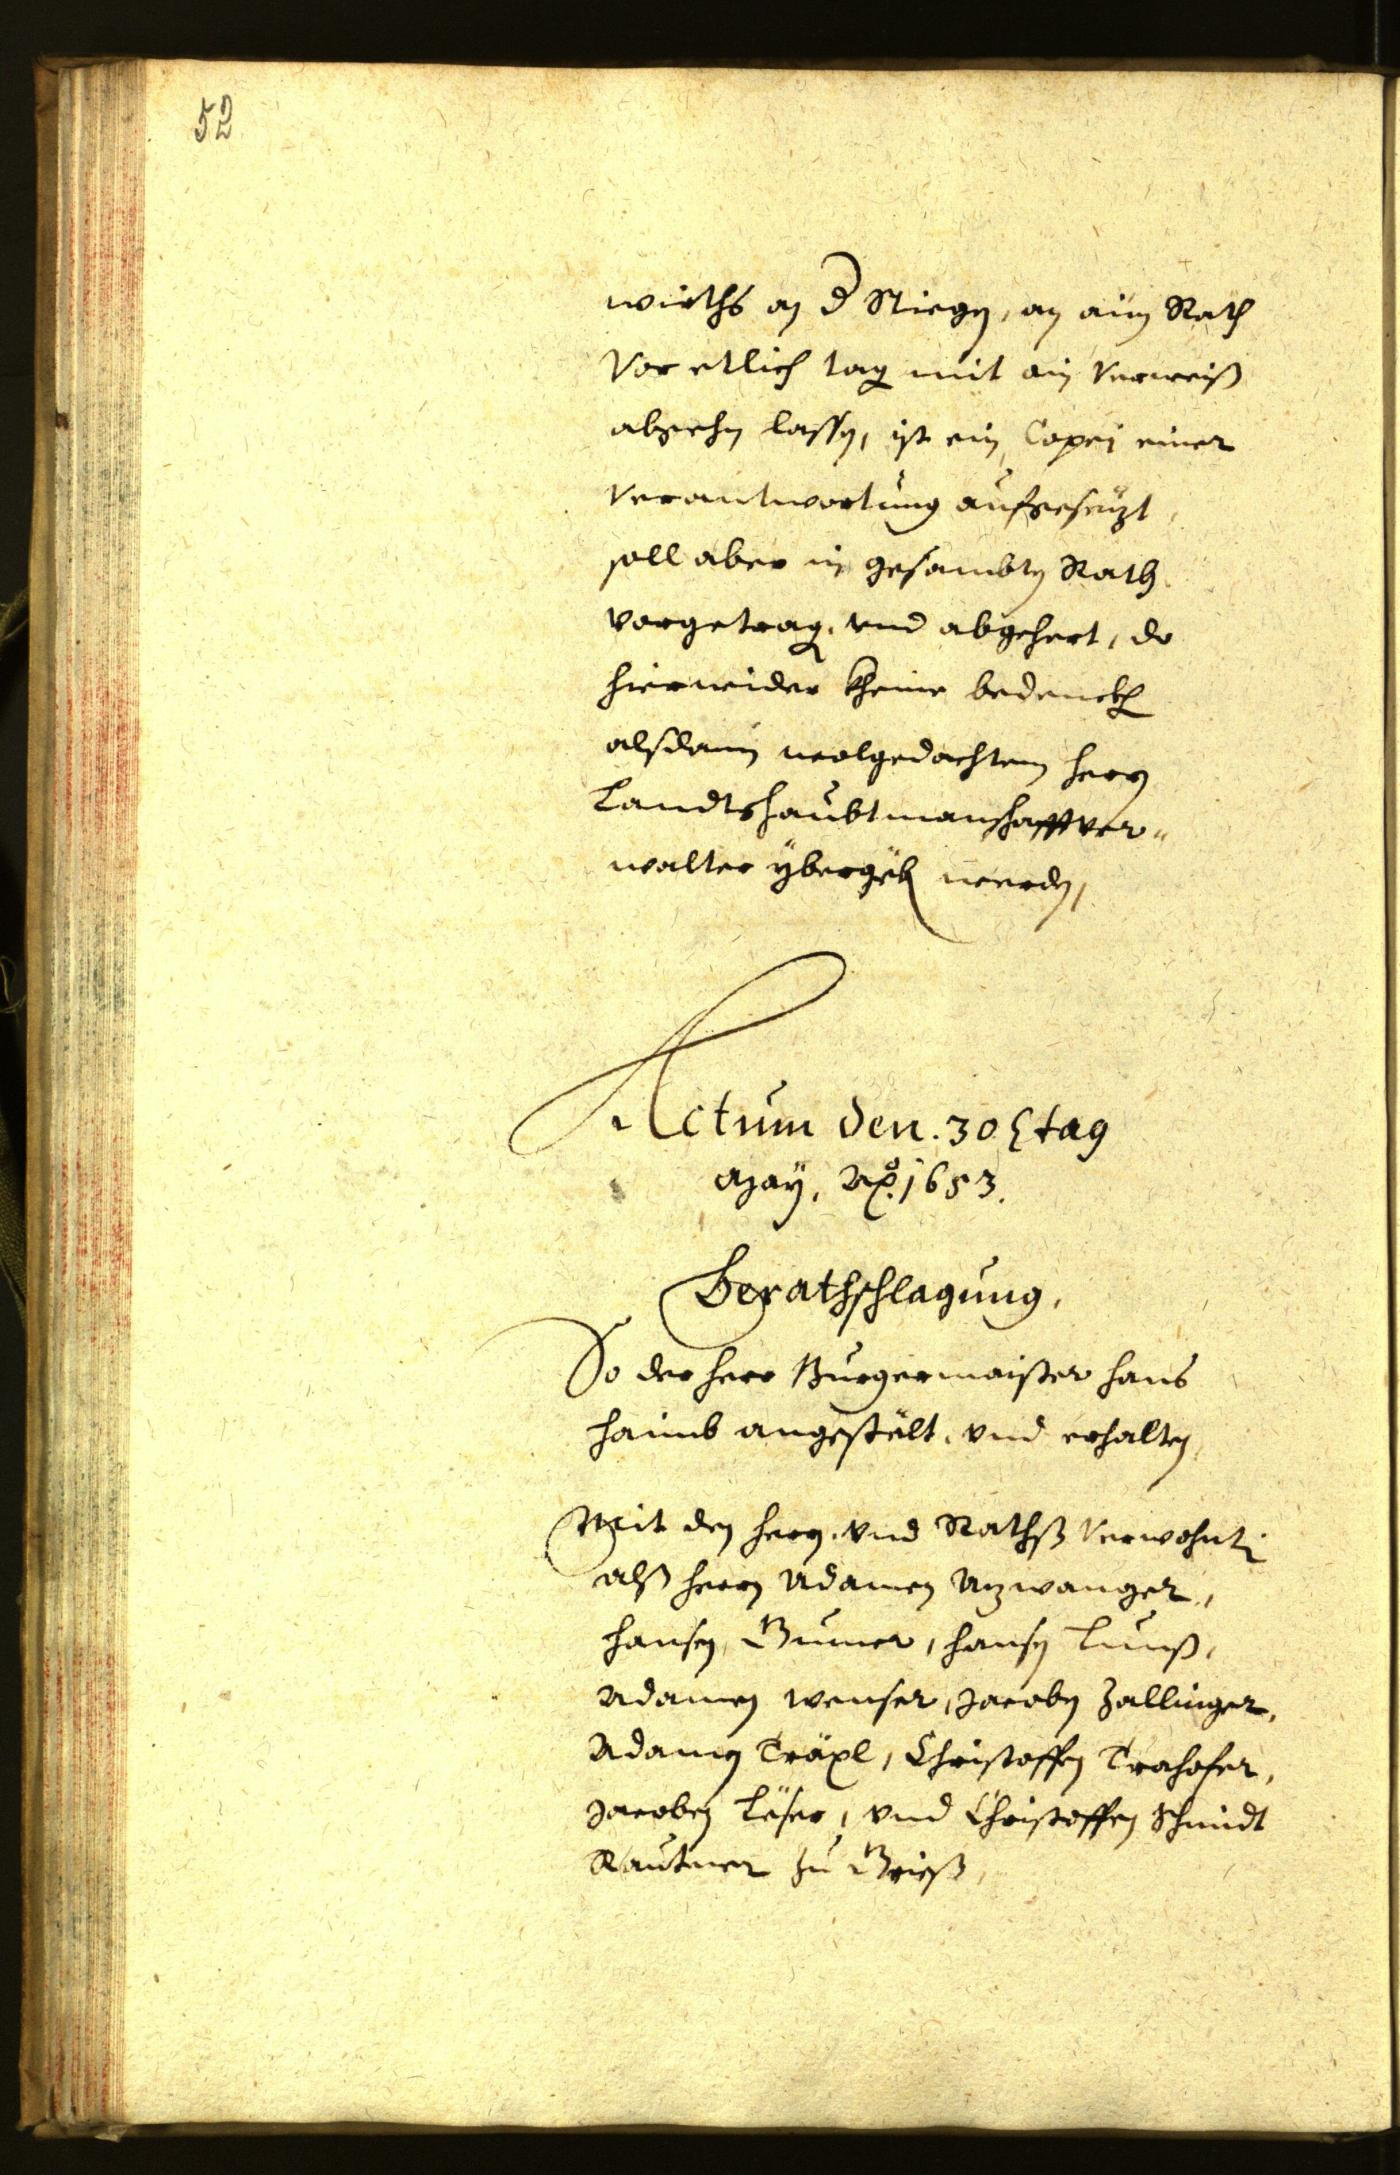 52
wirths an d Stiegn, an ain Rath
Vor etlich tag mit ain Verweiß
abgehn lassn, ist ein Copej einer
Verantwortung aufgesezt,
soll aber in gesambtn Rath
vorgetrag. vnd abgehert, do
hierwider kheine bedenckh
alsdann wolgedachtem herrn
Landtshaubtmanschafftver-
walter ÿbergeb werdn,
Actum den. 30 tag
Maÿ, Ao. 1653.
Berathschlagung,
So der herr Burgermaister hans
haimb angestelt, vnd erhalten
Mit den herrn. vnd Rathß Verwohnt
alß herrn Adamen Azwanger,
hansen, Gumer, hansn Lunß,
Adamen wenser, Jacobn Zallinger,
Adamen Träxl, Christoffen Trahofer,
Jacoben Leser, vnd Christoffen Schmidt
Rautner zu Grieß,